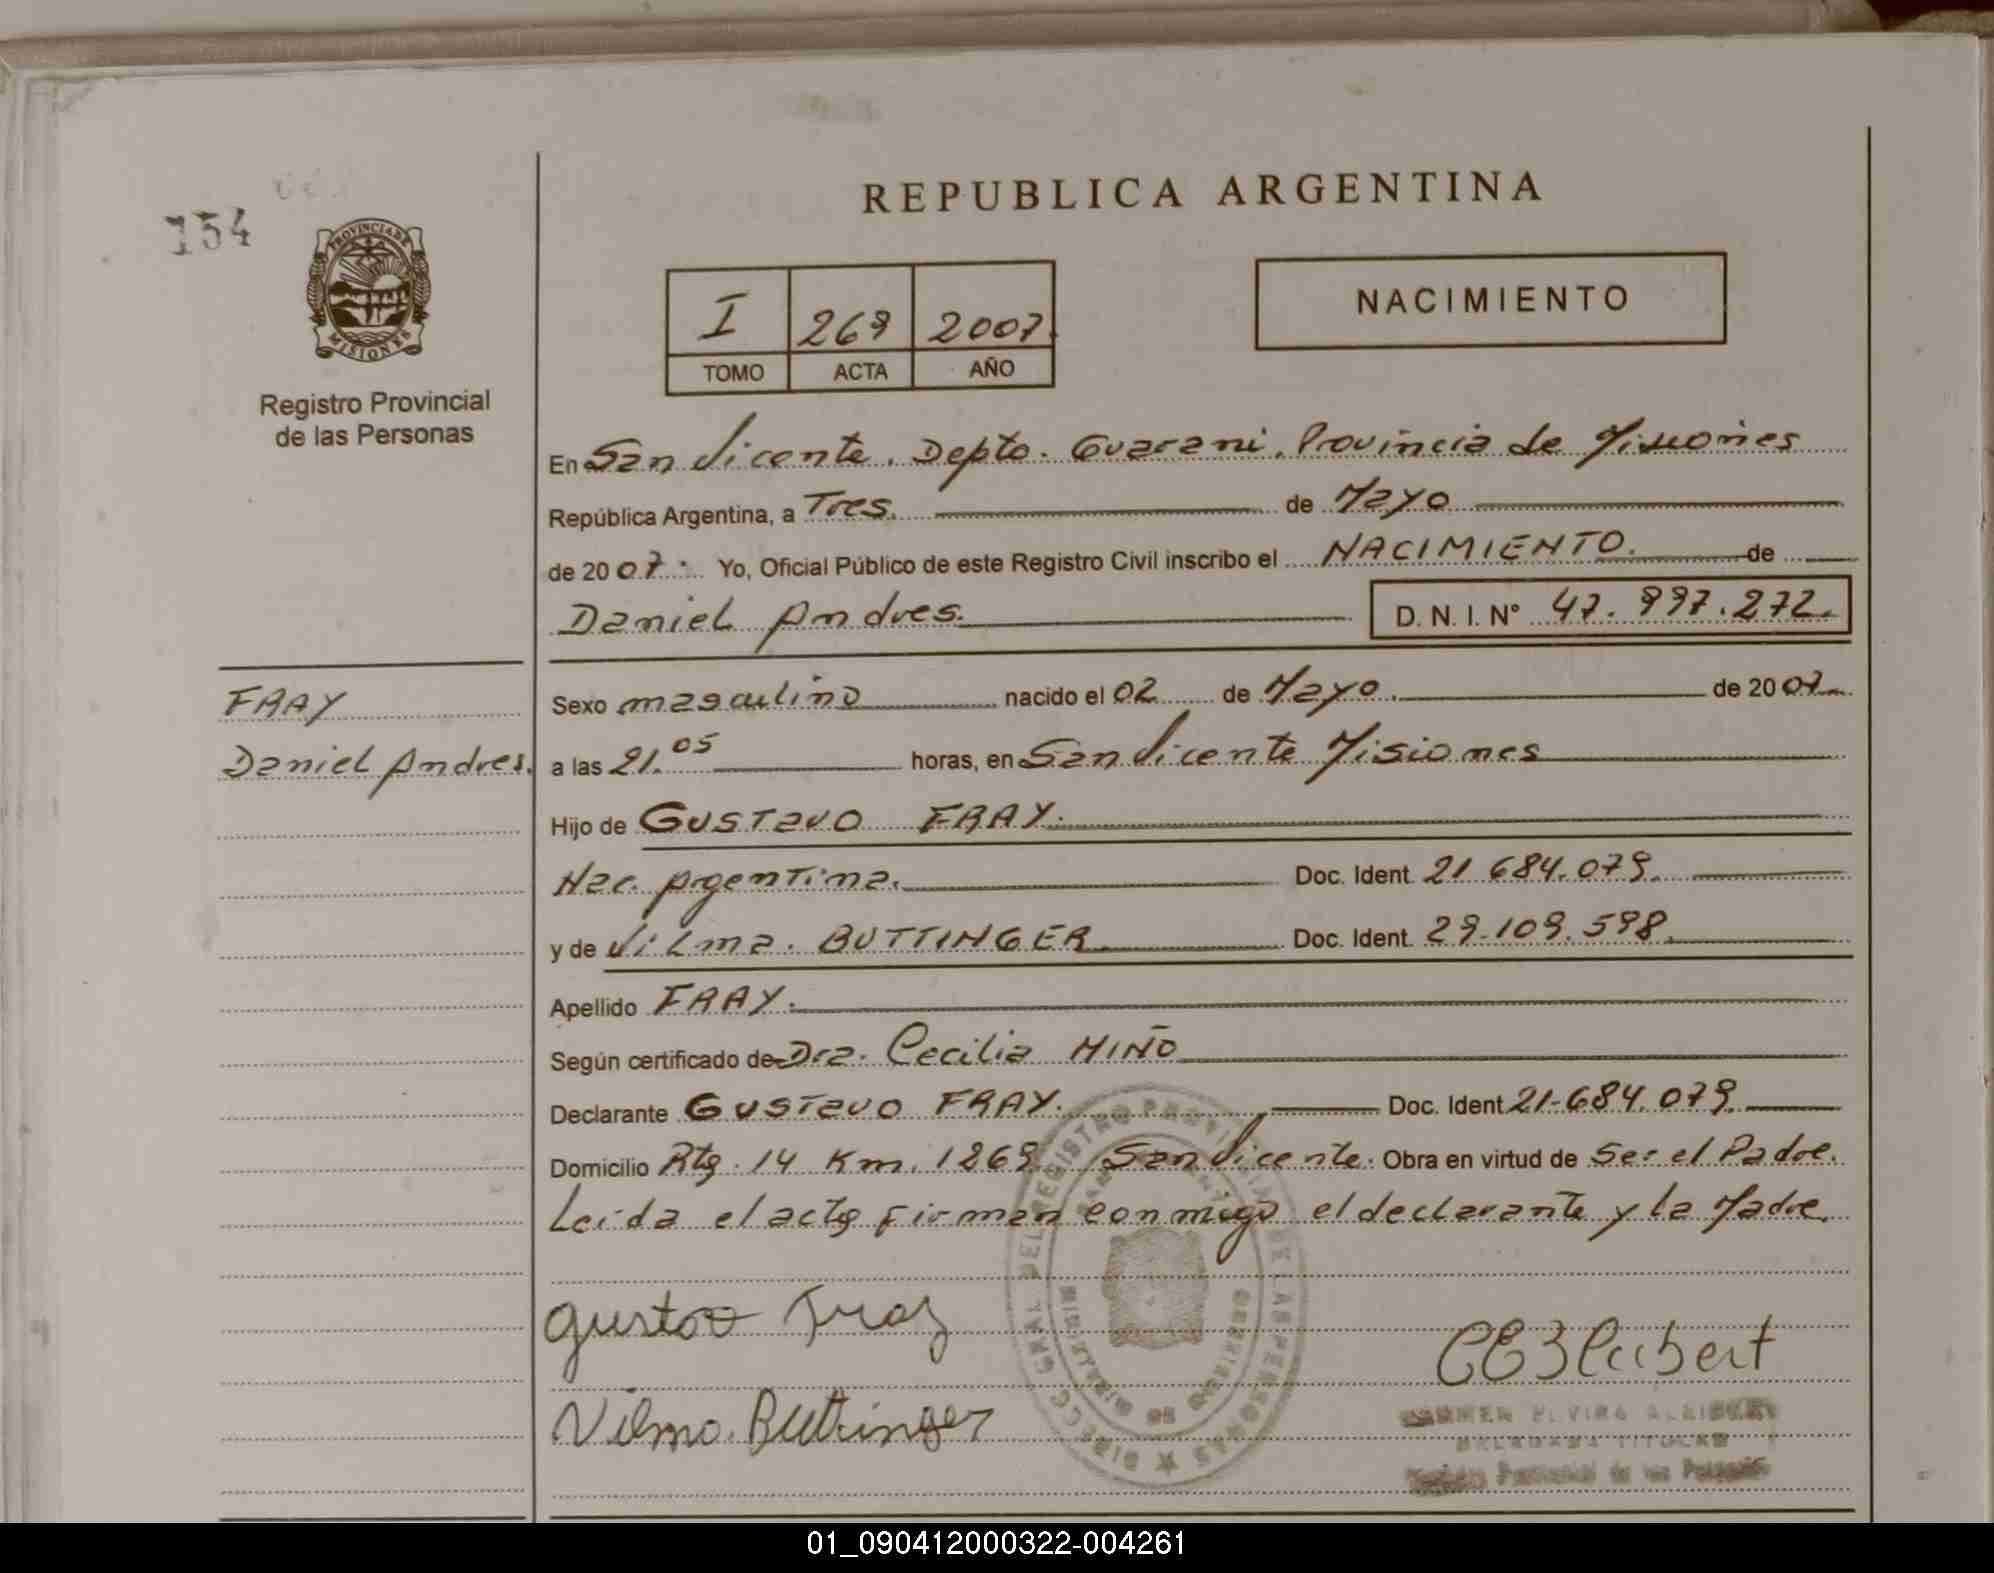 154
PROVINCIA DE
MISIONES
Registro Provincial
de las Personas
REPUBLICA ARGENTINA
I 269 2007
TOMO ACTA AÑO
NACIMIENTO
En San Vicente. Depto. Guarani. Provincia de Misiones
República Argentina, a Tres. de Mayo
de 20 07. Yo, Oficial Público de este Registro Civil inscribo el NACIMIENTO. de
Daniel Andres. D. N. I. Nº 47.997.272.
FRAY
Daniel Andres.
Sexo masculino nacido el 02 de Mayo. de 20 07
a las 21.05 horas, en San Vicente Misiones
Hijo de GUSTAVO FRAY.
Nac. Argentina. Doc. Ident. 21 684.079.
y de Vilma. BUTTINGER Doc. Ident. 29.109.598.
Apellido FRAY.
Según certificado de Dra. Cecilia MIÑO
Declarante GUSTAVO FRAY. Doc. Ident 21-684.079.
Domicilio Rta. 14 Km. 1269 San Vicente. Obra en virtud de Ser el Padre.
Leída el acta firman conmigo el declarante y la Madre.
Gustavo Fray
Vilma Buttinger
DIRECC GRAL DEL REGISTRO PROVINCIAL DE LAS PERSONAS
CARMEN ELVIRA
DELEGADA TITULAR
Registro Provincial de las Personas
01_090412000322-004261